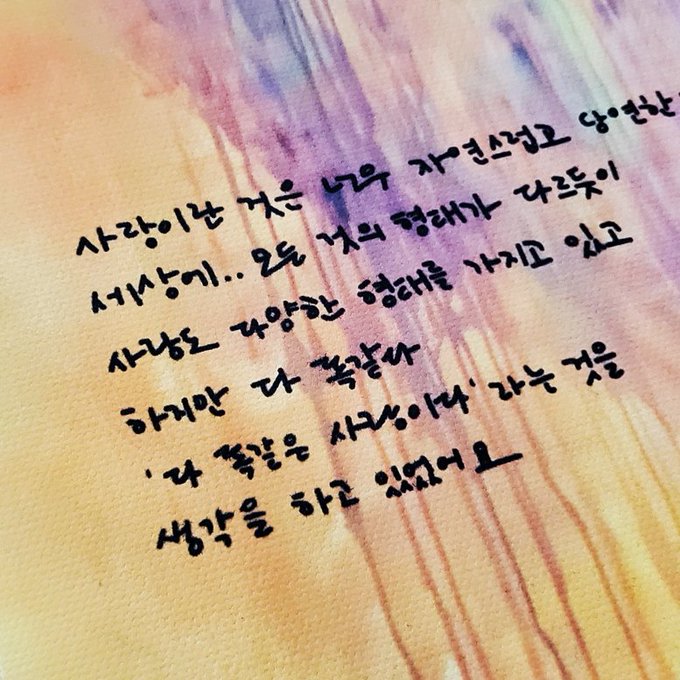 사랑이란 것은 너무 자연스럽고 당연한
세상에.. 모든 것의 형태가 다르듯이
사랑도 다양한 형태를 가지고 있고
하지만 다 똑같다
'다 똑같은 사랑이다' 라는 것을
생각을 하고 있었어요